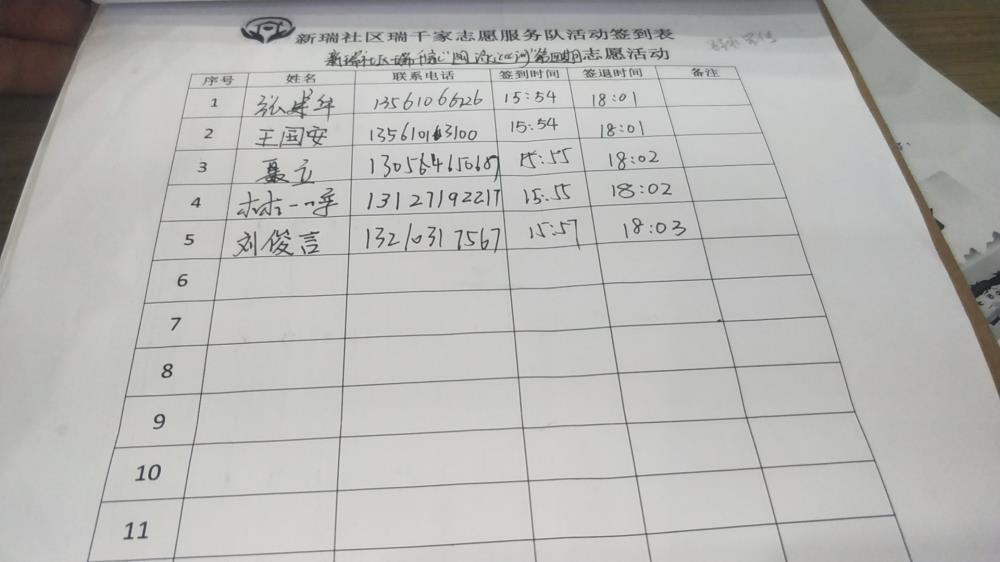 新瑞社区瑞千家志愿服务队活动签到表
新瑞社区瑞千家" 第四期志愿活动
序号 姓名 联系电话 签到时间 签退时间 备注
1 张建军 13561066626 15:54 18:01
2 王国安 13561013100 15:54 18:01
3 聂立 13056465068 15:55 18:02
4 林一呼 13127192217 15:55 18:02
5 刘俊言 13210317567 15:57 18:03
6
7
8
9
10
11